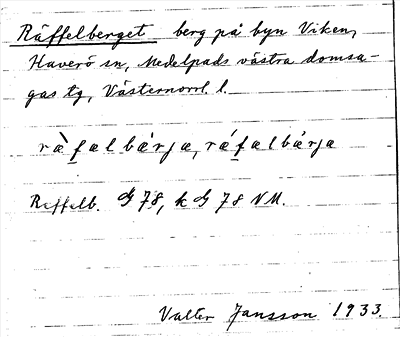 Räffelberget berg på byn Viken,
Haverö sn, Medelpads västra domsa-
gas tg, Västernorrl. l.
ràf̲albærja, ráf̲albærja
Reffelb. G 78, k G 78 NM.
Valter Jansson 1933.